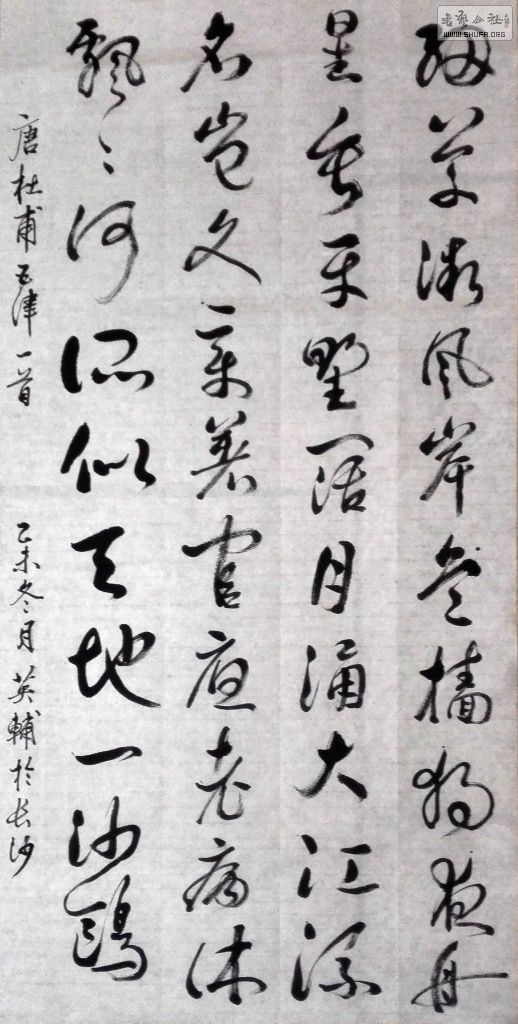 細草微風岸危檣獨夜舟
星垂平野闊月涌大江流
名豈文章著官應老病休
飄々何所似天地一沙鷗
唐杜甫五律一首 乙未冬月英輔於长沙
書藝公社
WWW.SHUFA.ORG